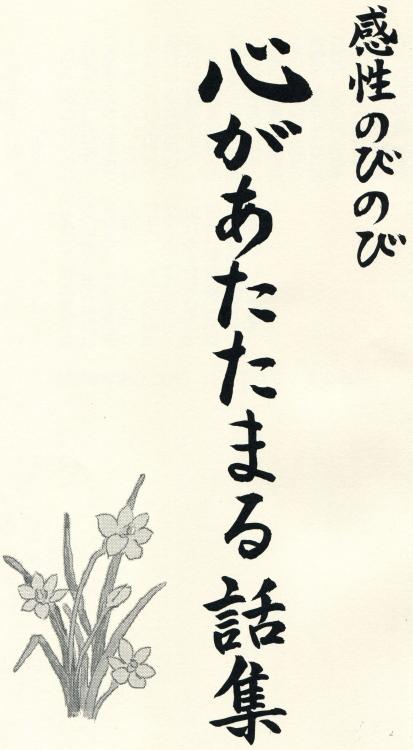 感性のびのび
心があたたまる話集